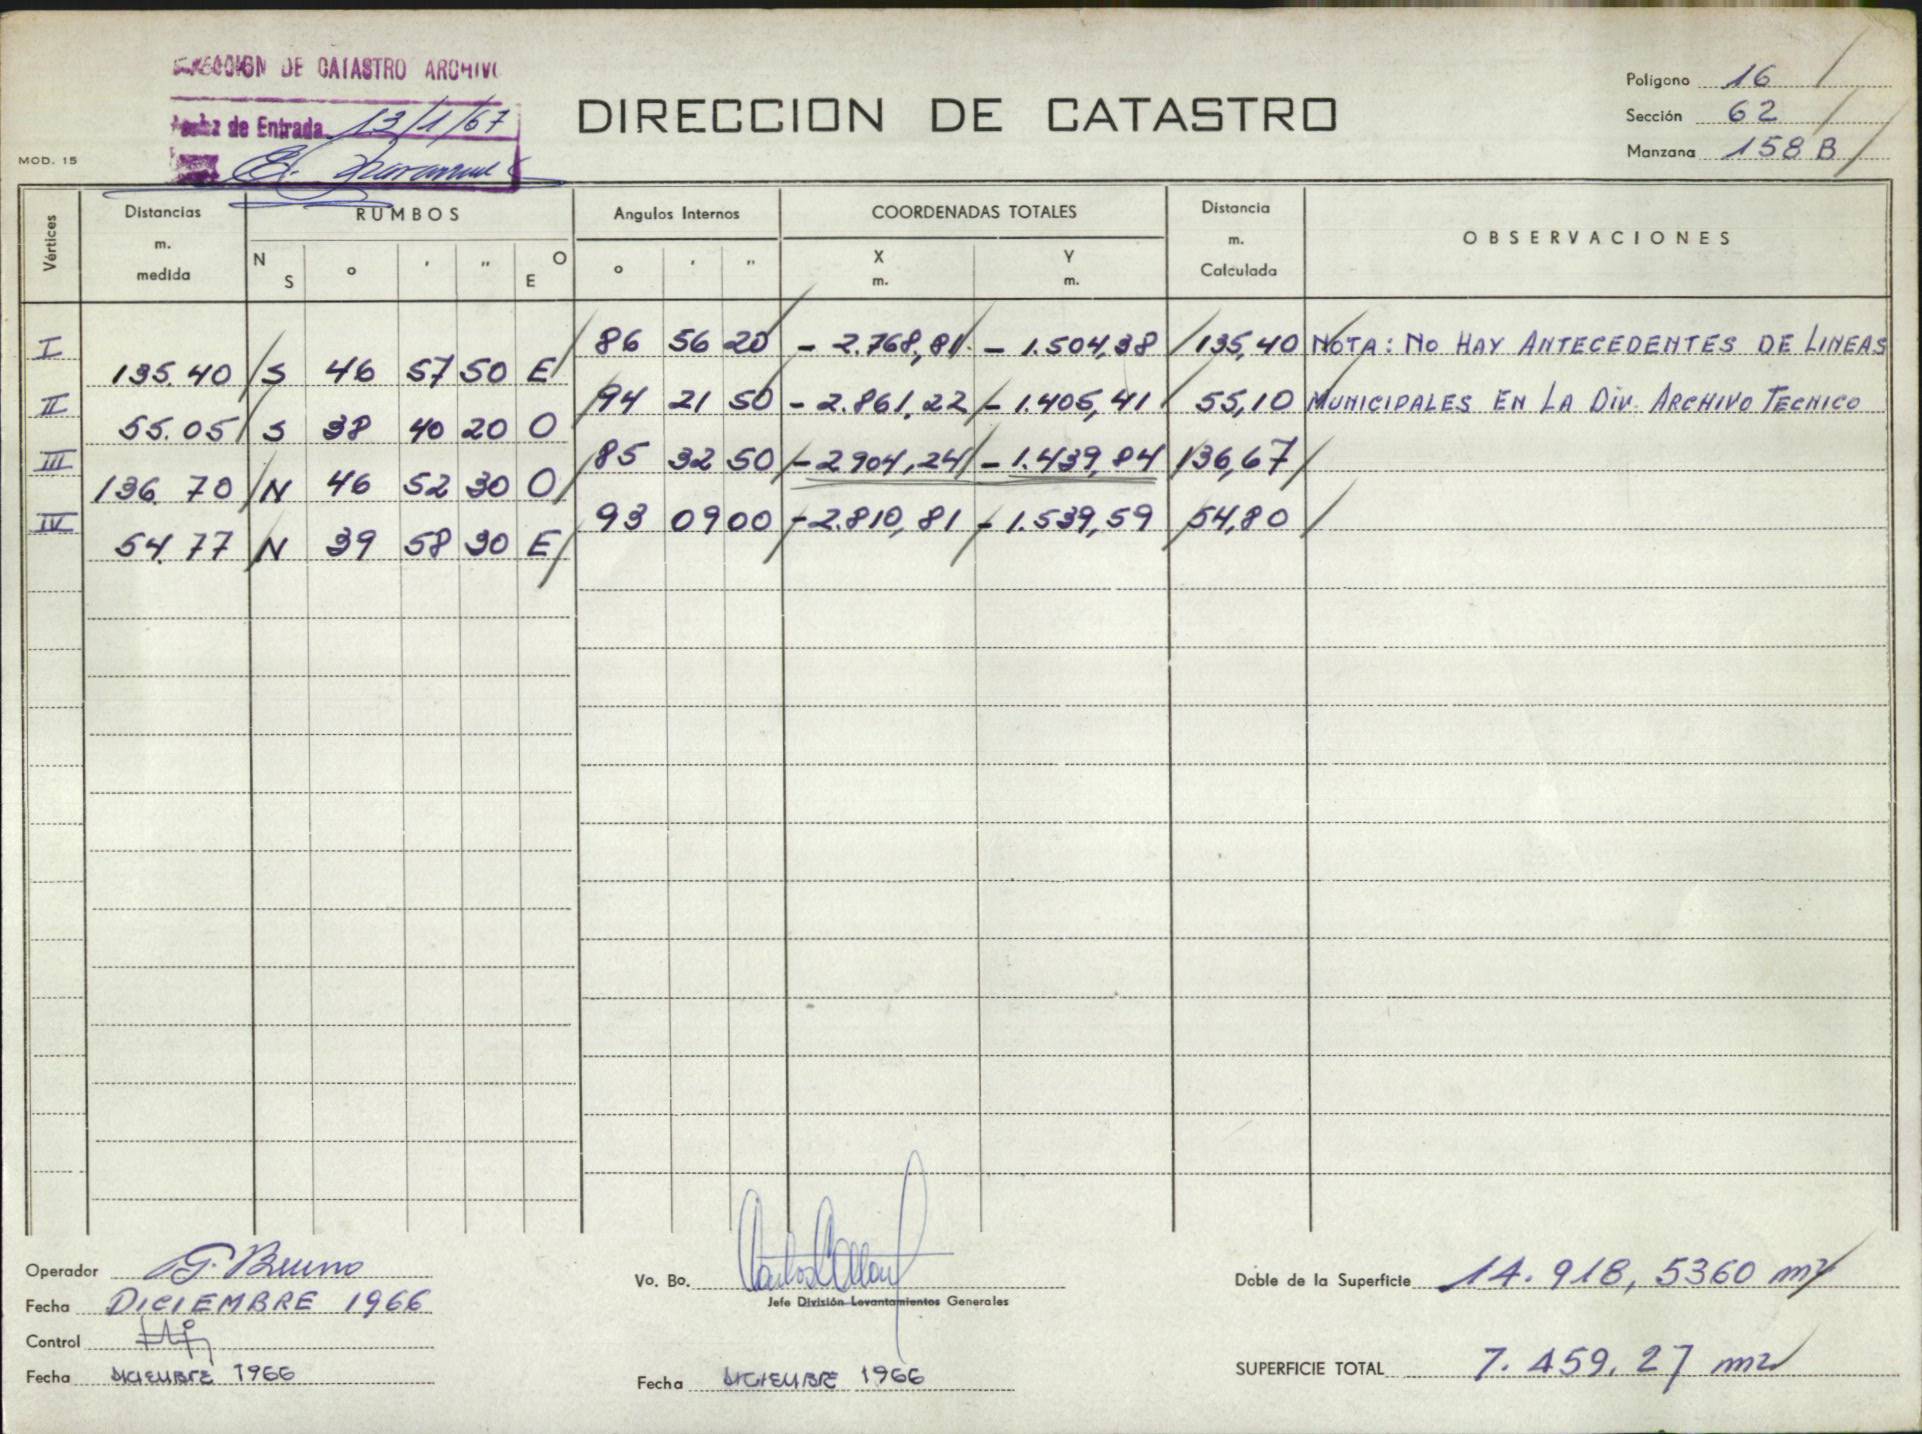 DE CATASTRO ARCHIVO
de Entrada 13/1/67
DIRECCION DE CATASTRO
Polígono 16
Sección 62
Manzana 158 B
MOD. 15
Vértices Distancias m. medida RUMBOS N S o ' " O E Angulos Internos o ' " COORDENADAS TOTALES X m. Y m. Distancia m. Calculada OBSERVACIONES
I 86 56 20 - 2.768,81 - 1.504,38 135,40 NOTA: NO HAY ANTECEDENTES DE LINEAS
135.40 S 46 57 50 E
II 94 21 50 - 2.861,22 - 1.405,41 55,10 MUNICIPALES EN LA DIV. ARCHIVO TECNICO
55.05 S 38 40 20 O
III 85 32 50 - 2904,24 - 1.439,84 136,67
136.70 N 46 52 30 O
IV 93 09 00 - 2.810,81 - 1.539,59 54,80
54.77 N 39 58 30 E
Operador G. Bruno
Fecha DICIEMBRE 1966
Control
Fecha DICIEMBRE 1966
Vo. Bo.
Jefe División Levantamientos Generales
Fecha DICIEMBRE 1966
Doble de la Superficie 14.918,5360 m2
SUPERFICIE TOTAL 7.459,27 m2